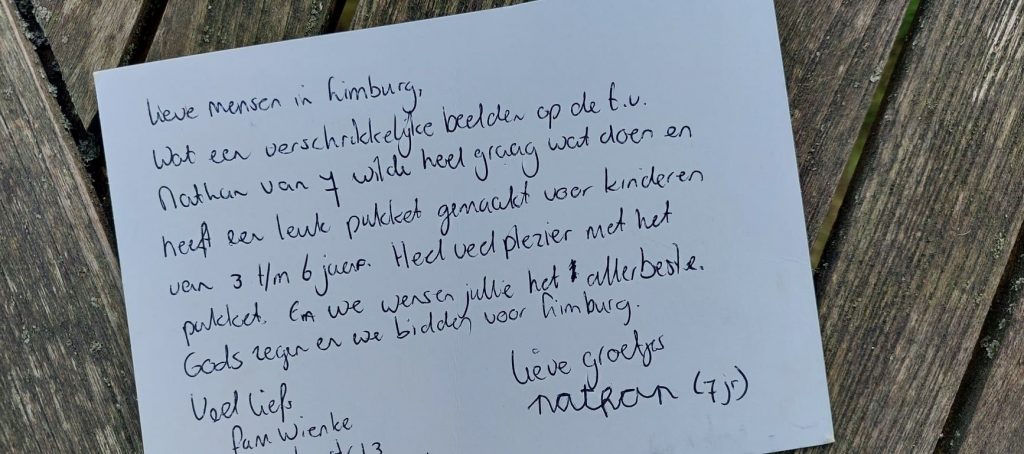 lieve mensen in Limburg,
Wat een verschrikkelijke beelden op de t.v.
Nathan van 7 wilde heel graag wat doen en
heeft een leuk pakket gemaakt voor kinderen
van 3 t/m 6 jaar. Heel veel plezier met het
pakket. En we wensen jullie het allerbeste.
Gods zegen en we bidden voor Limburg.
Veel liefs
fam Wienke
lieve groetjes
nathan (7 jr)